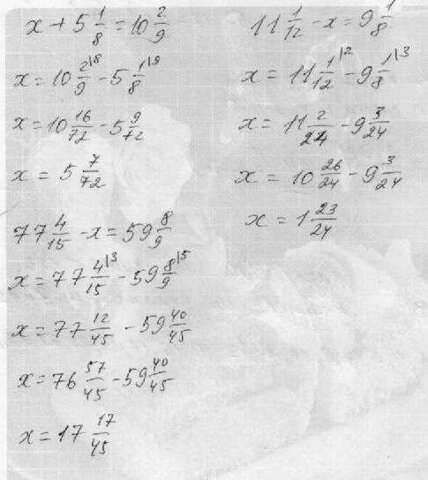 x + 5 1/8 = 10 2/9
x = 10 2/9 |8 - 5 1/8 |9
x = 10 16/72 - 5 9/72
x = 5 7/72
77 4/15 - x = 59 8/9
x = 77 4/15 |3 - 59 8/9 |5
x = 77 12/45 - 59 40/45
x = 76 57/45 - 59 40/45
x = 17 17/45
11 1/12 - x = 9 1/8
x = 11 1/12 |2 - 9 1/8 |3
x = 11 2/24 - 9 3/24
x = 10 26/24 - 9 3/24
x = 1 23/24